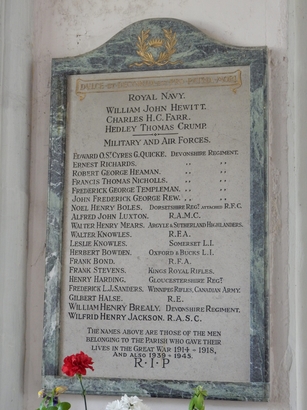 DULCE ET DECORUM EST PRO PATRIA MORI
ROYAL NAVY.
WILLIAM JOHN HEWITT.
CHARLES H.C. FARR.
HEDLEY THOMAS CRUMP.
MILITARY AND AIR FORCES.
EDWARD O. ST CYRES G. QUICKE. DEVONSHIRE REGIMENT.
ERNEST RICHARDS. " "
ROBERT GEORGE HEAMAN. " "
FRANCIS THOMAS NICHOLLS. " "
FREDERICK GEORGE TEMPLEMAN. " "
JOHN FREDERICK GEORGE REW. " "
NOEL HENRY BOLES. DORSETSHIRE REGT. ATTACHED R.F.C.
ALFRED JOHN LUXTON. R.A.M.C.
WALTER HENRY MEARS. ARGYLE & SUTHERLAND HIGHLANDERS.
WALTER KNOWLES. R.F.A.
LESLIE KNOWLES. SOMERSET L.I.
HERBERT BOWDEN. OXFORD & BUCKS L.I.
FRANK BOND. R.F.A.
FRANK STEVENS. KINGS ROYAL RIFLES.
HENRY HARDING. GLOUCESTERSHIRE REGT.
FREDERICK L.J. SANDERS. WINNIPEG RIFLES, CANADIAN ARMY.
GILBERT HALSE. R.E.
WILLIAM HENRY BREALY. DEVONSHIRE REGIMENT.
WILFRID HENRY JACKSON. R.A.S.C.
THE NAMES ABOVE ARE THOSE OF THE MEN
BELONGING TO THE PARISH WHO GAVE THEIR
LIVES IN THE GREAT WAR 1914-1918,
AND ALSO 1939-1945.
R·I·P